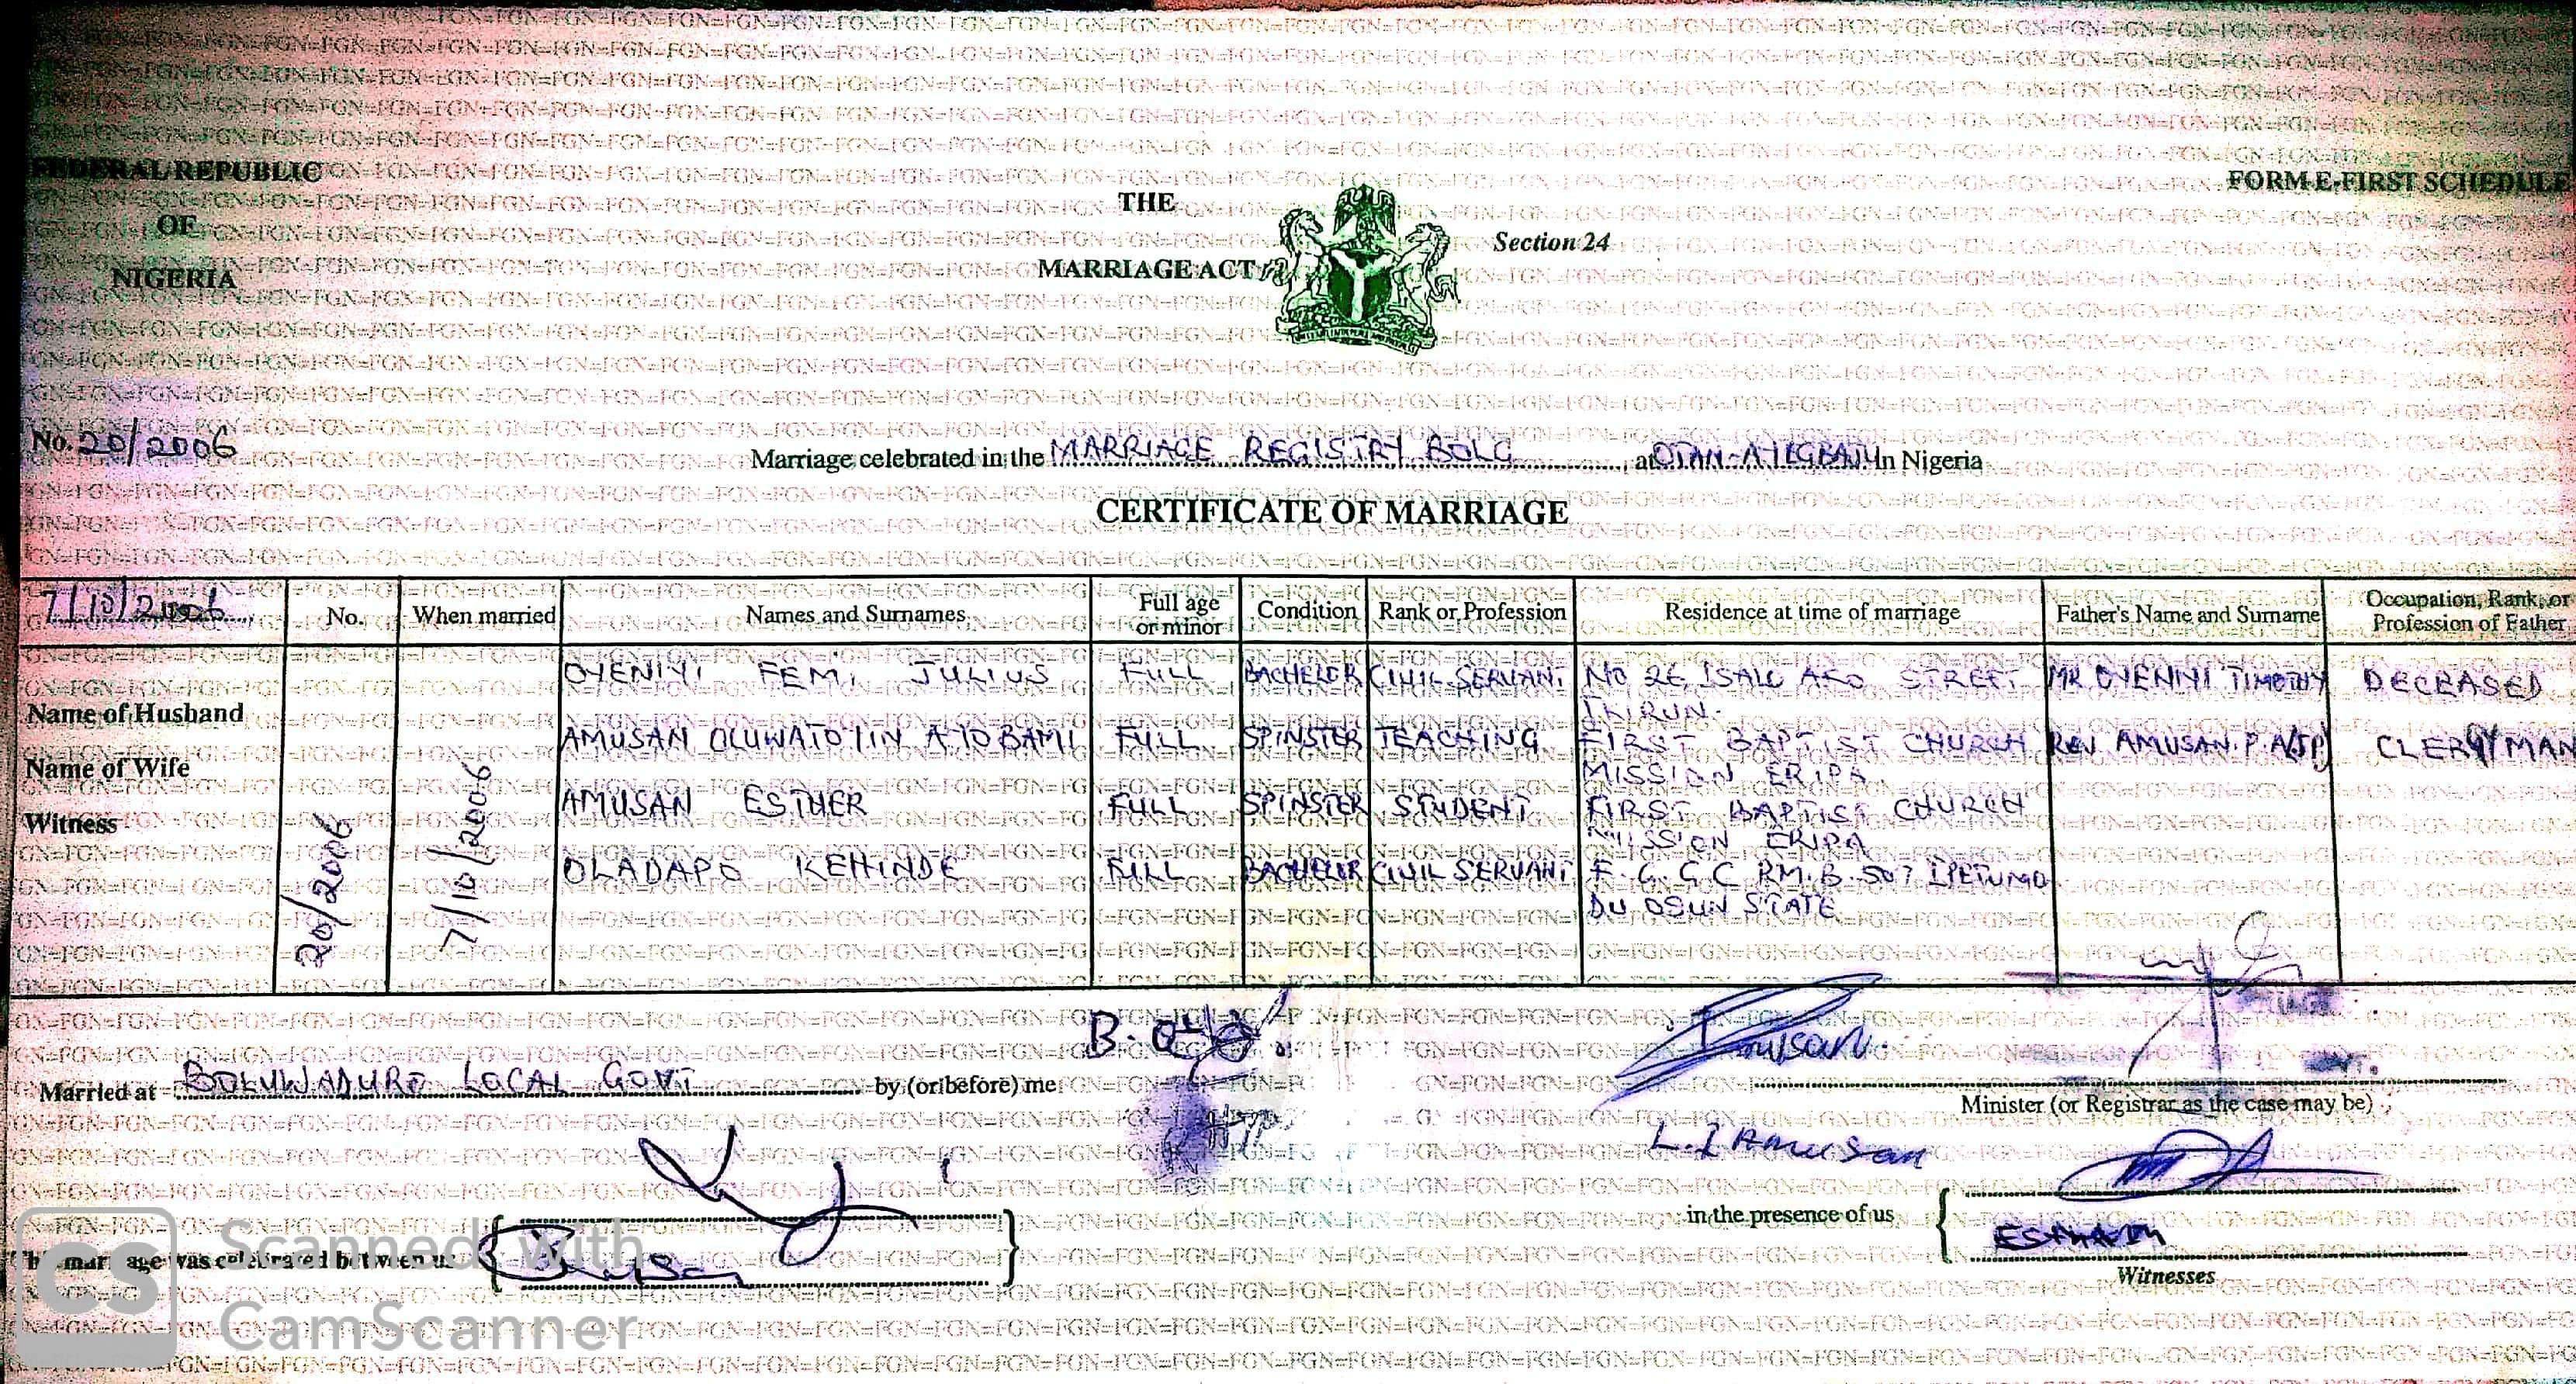 FEDERAL REPUBLIC
OF
NIGERIA
THE
MARRIAGE ACT
Section 24
FORM E-FIRST SCHEDULE
No. 20/2006
Marriage celebrated in the MARRIAGE REGISTRY BOLG, at OTAN-AYEGBAJU in Nigeria
CERTIFICATE OF MARRIAGE
7/10/2006 No. When married Names and Surnames Full age or minor Condition Rank or Profession Residence at time of marriage Father's Name and Surname Occupation, Rank, or Profession of Father
Name of Husband OYENIYI FEMI JULIUS FULL BACHELOR CIVIL SERVANT NO 26 ISALE ARO STREET IKIRUN. MR OYENIYI TIMOTHY DECEASED
Name of Wife AMUSAN OLUWATOYIN AYOBAMI FULL SPINSTER TEACHING FIRST BAPTIST CHURCH MISSION ERIPA REV AMUSAN P.A (JP) CLERGYMAN
Witness AMUSAN ESTHER FULL SPINSTER STUDENT FIRST BAPTIST CHURCH MISSION ERIPA
OLADAPO KEHINDE FULL BACHELOR CIVIL SERVANT F.G.G.C P.M.B. 507 IPETUMODU OSUN STATE
20/2006
7/10/2006
Married at BOLUWADURO LOCAL GOVT by (or before) me
Minister (or Registrar as the case may be)
L.I Amusan
in the presence of us
Witnesses
The marriage was celebrated between us
Scanned with
CS CamScanner